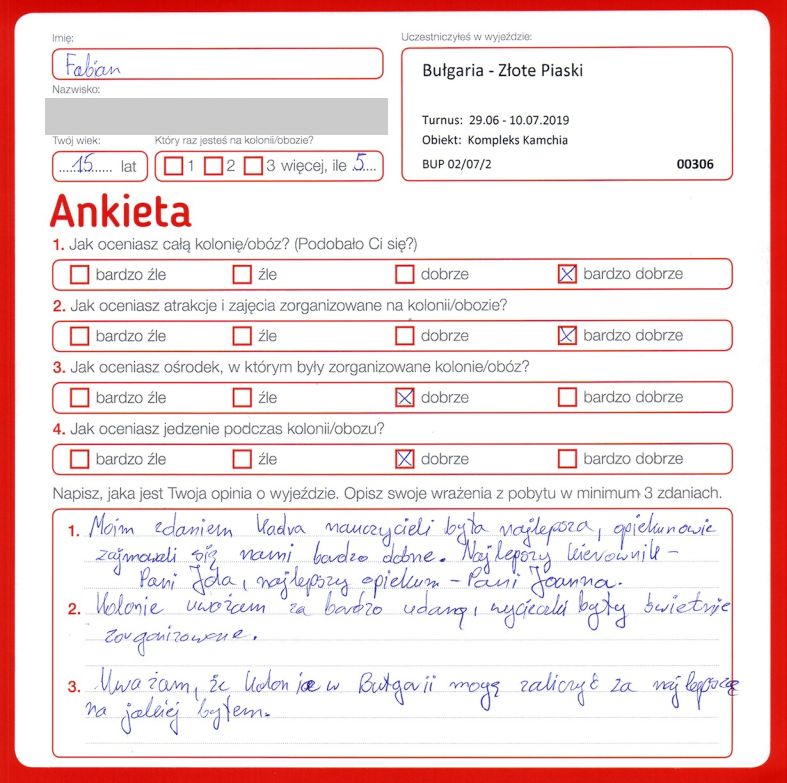 Imię:
Fabian
Nazwisko:
Twój wiek:
15 lat
Który raz jesteś na kolonii/obozie?
1 2 3 więcej, ile 5
Uczestniczyłeś w wyjeździe:
Bułgaria - Złote Piaski
Turnus: 29.06 - 10.07.2019
Obiekt: Kompleks Kamchia
BUP 02/07/2 00306
Ankieta
1. Jak oceniasz całą kolonię/obóz? (Podobało Ci się?)
bardzo źle źle dobrze bardzo dobrze
2. Jak oceniasz atrakcje i zajęcia zorganizowane na kolonii/obozie?
bardzo źle źle dobrze bardzo dobrze
3. Jak oceniasz ośrodek, w którym były zorganizowane kolonie/obóz?
bardzo źle źle dobrze bardzo dobrze
4. Jak oceniasz jedzenie podczas kolonii/obozu?
bardzo źle źle dobrze bardzo dobrze
Napisz, jaka jest Twoja opinia o wyjeździe. Opisz swoje wrażenia z pobytu w minimum 3 zdaniach.
1. Moim zdaniem kadra nauczycieli była najlepsza, opiekunowie
zajmowali się nami bardzo dobrze. Najlepszy kierownik -
Pani Ida, najlepszy opiekun - Pani Joanna.
2. Kolonie uważam za bardzo udaną, wycieczki były świetnie
zorganizowane.
3. Uważam, że kolonie w Bułgarii mogę zaliczyć za najlepszą
na jakiej byłem.